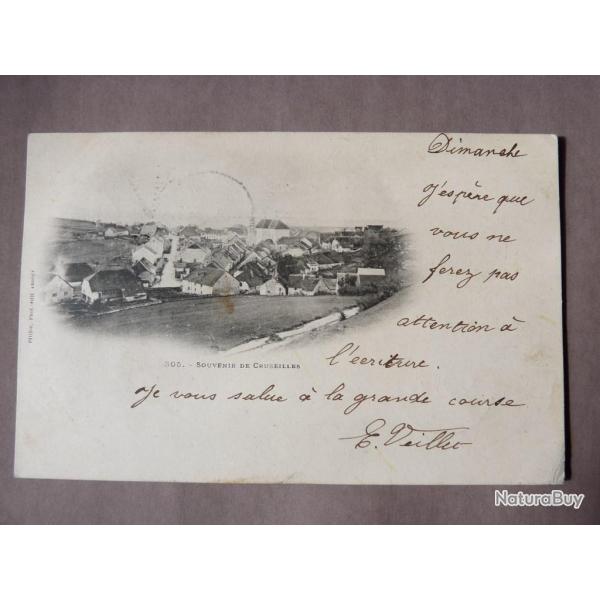 Dimanche
J'espère que
vous ne
ferez pas
attention à
l'écriture.
305. - SOUVENIR DE CRUSEILLES
Je vous salue à la grande course
E. Veillet
NaturaBuy